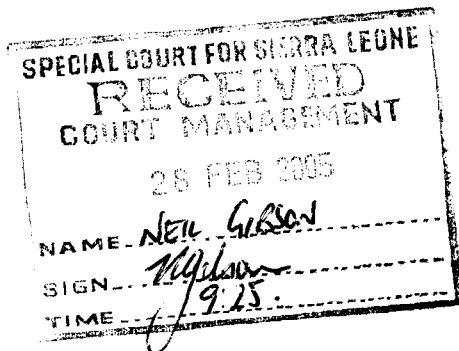 SPECIAL COURT FOR SIERRA LEONE
RECEIVED
COURT MANAGEMENT
28 FEB 2005
NAME NEIL GIBSON
SIGN NGibson
TIME 9:25.